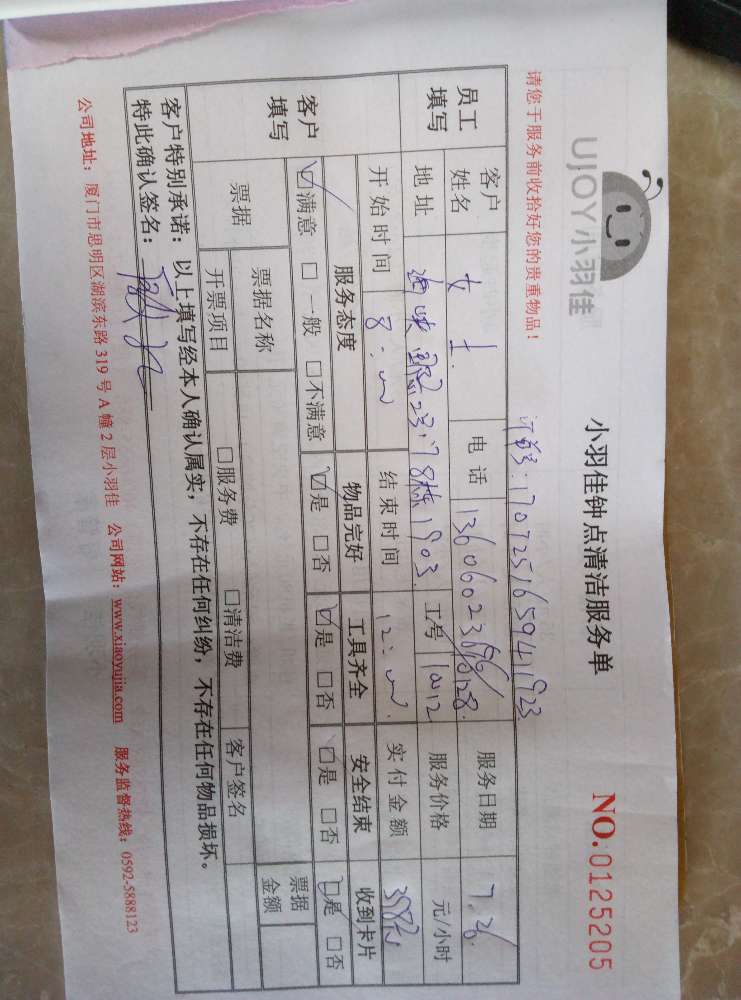 UJOY小羽佳
小羽佳钟点清洁服务单
NO.0125205
请您于服务前收拾好您的贵重物品！
订单号：170725165941923
员工填写
客户姓名 女士 电话 服务日期 7.26
地址 23-78栋1903 工号 服务价格 元/小时
开始时间 8：00 结束时间 12：00 实付金额
客户填写
服务态度 物品完好 工具齐全 安全结束 收到卡片
☑满意 □一般 □不满意 ☑是 □否 ☑是 □否 ☑是 □否 ☑是 □否
票据 票据名称 客户签名 票据金额
开票项目 □服务费 □清洁费
客户特别承诺：以上填写经本人确认属实，不存在任何纠纷，不存在任何物品损坏。
特此确认签名：
公司地址：厦门市思明区湖滨东路319号A幢2层小羽佳 公司网站：www.xiaoyujia.com 服务监督热线：0592-5888123